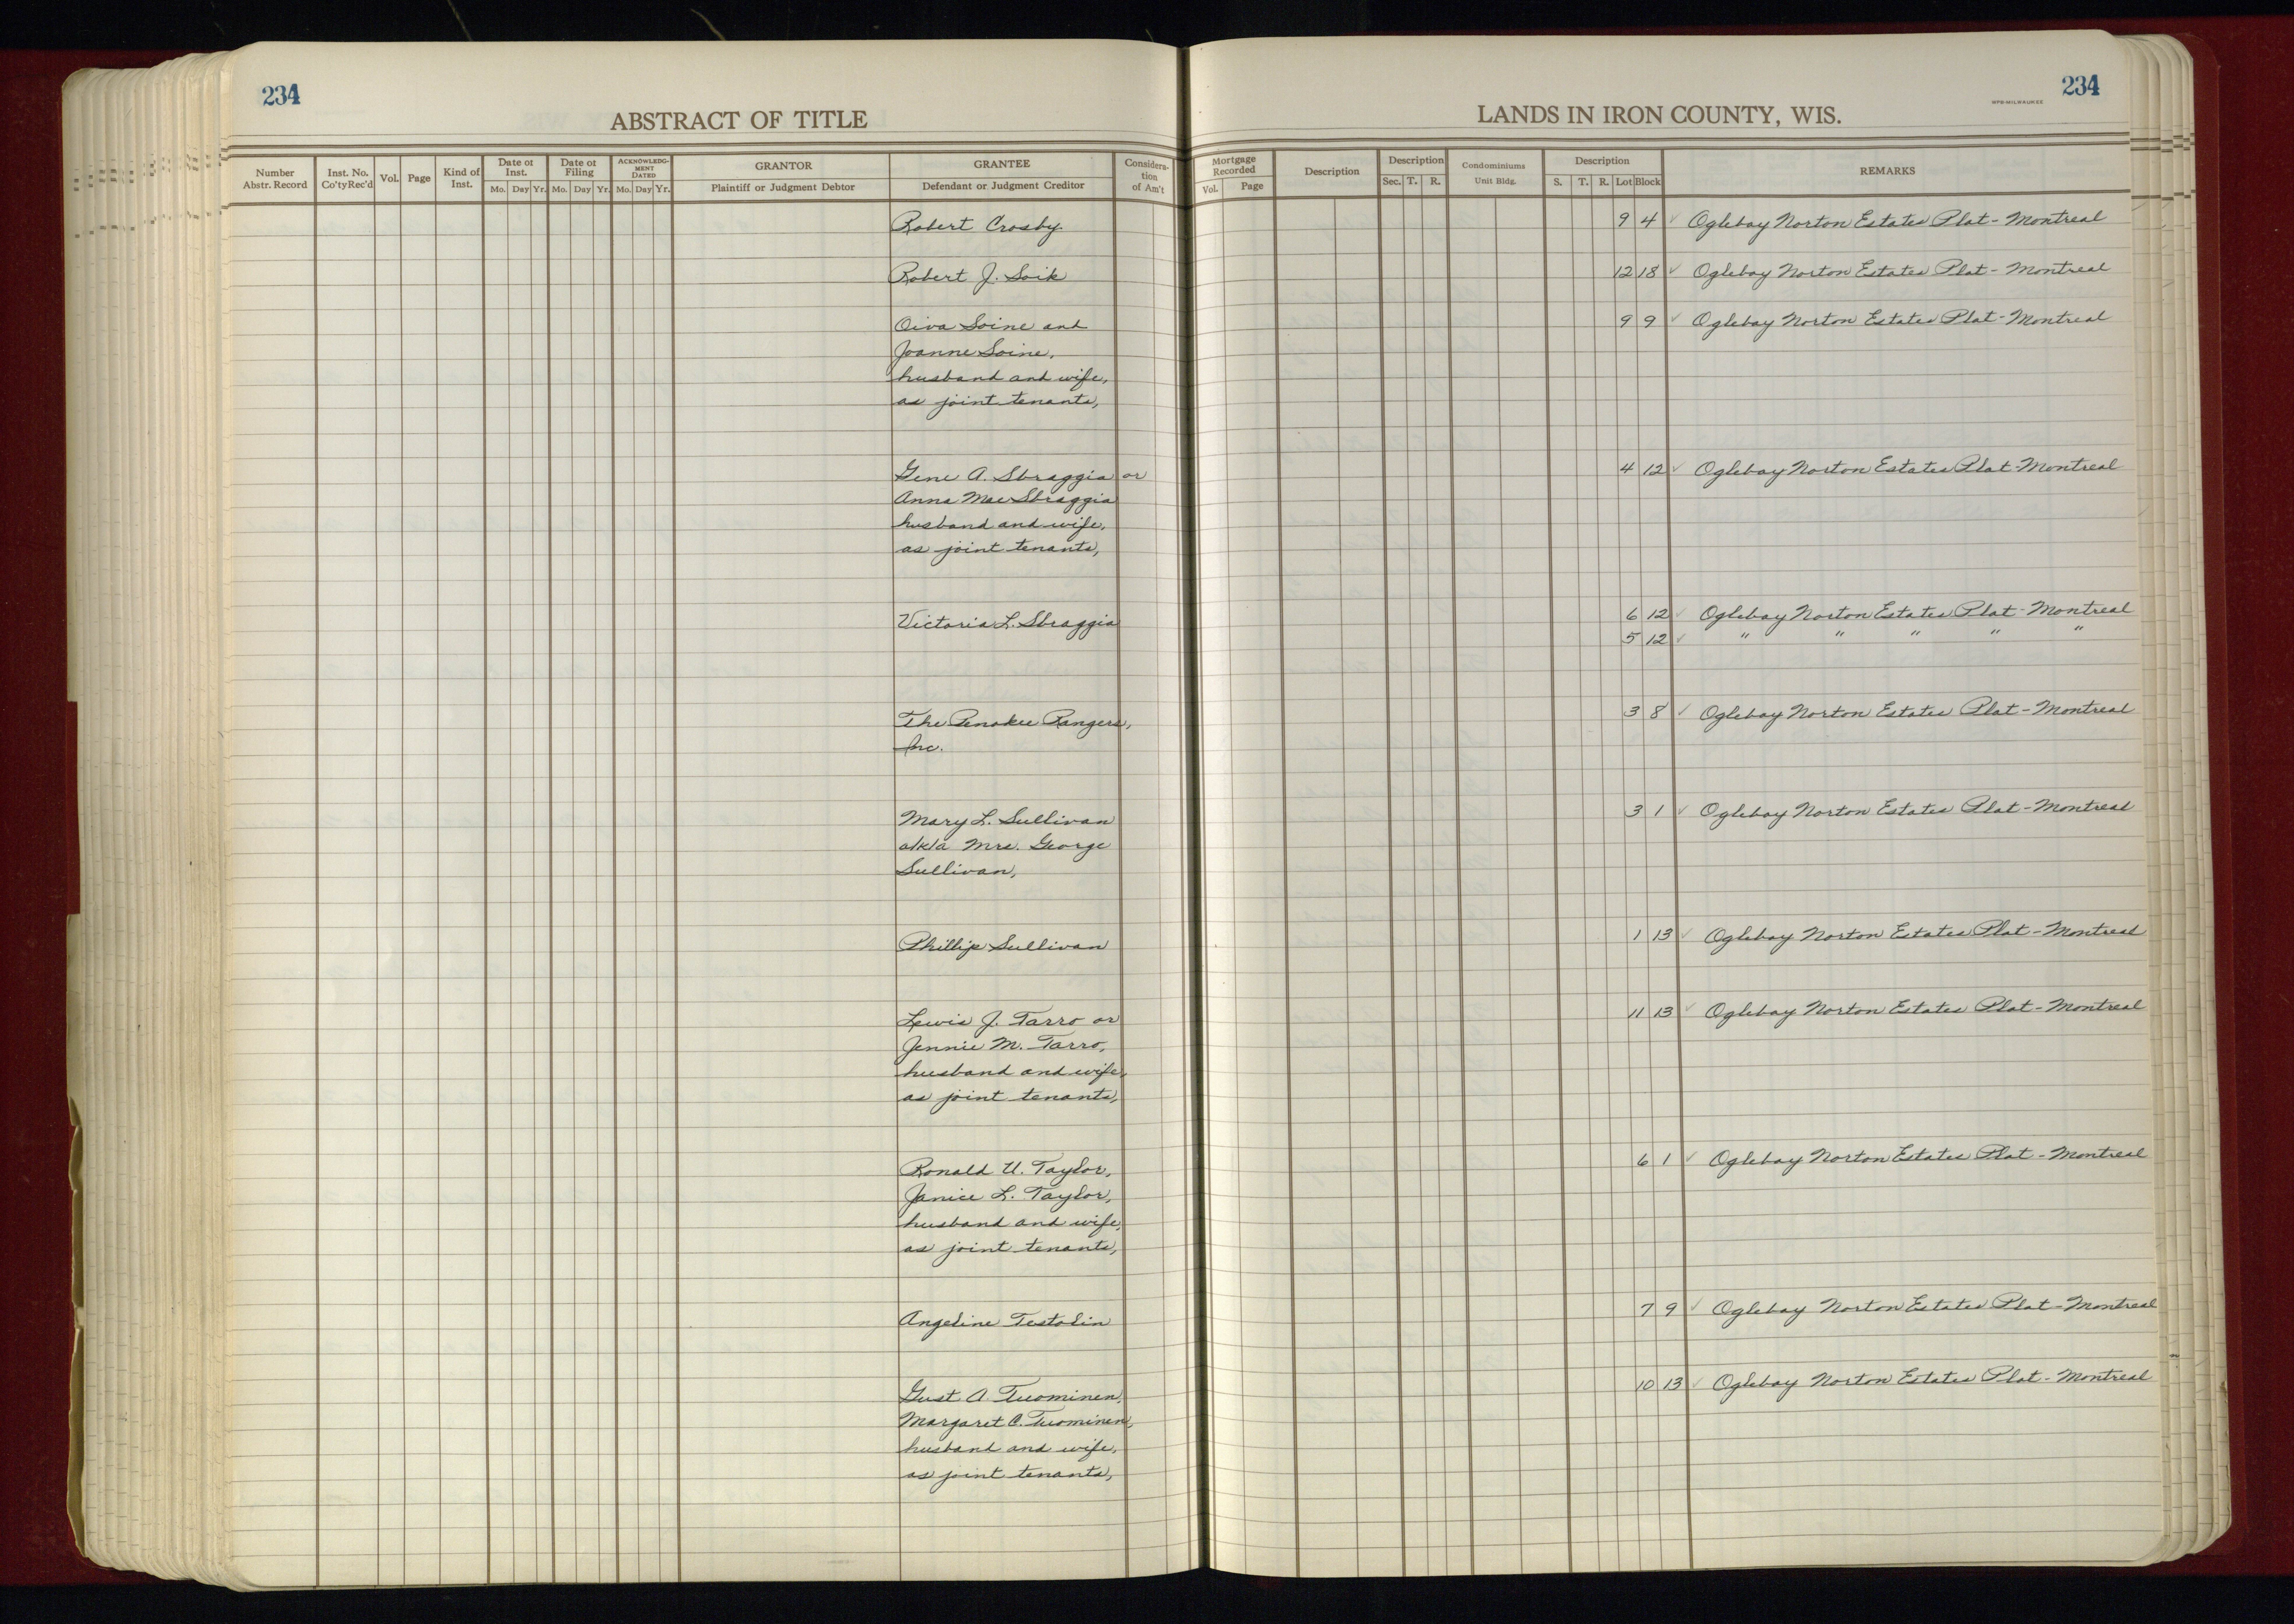 234
ABSTRACT OF TITLE
Number Abstr. Record
Inst. No. Co'ty Rec'd
Vol.
Page
Kind of Inst.
Date of Inst. Mo. Day Yr.
Date of Filing Mo. Day Yr.
ACKNOWLEDGMENT DATED Mo. Day Yr.
GRANTOR
Plaintiff or Judgment Debtor
GRANTEE
Defendant or Judgment Creditor
Consideration of Am't
234
WPB-MILWAUKEE
LANDS IN IRON COUNTY, WIS.
Mortgage Recorded Vol. Page
Description
Description Sec. T. R.
Condominiums Unit Bldg.
Description S. T. R. Lot Block
REMARKS
Robert Crosby. 9 4 ✓ Oglebay Norton Estates Plat - Montreal
Robert J. Soik 12 18 ✓ Oglebay Norton Estates Plat - Montreal
Oiva Soine and 9 9 ✓ Oglebay Norton Estates Plat - Montreal
Joanne Soine,
husband and wife,
as joint tenants,
Gene A. Sbraggia or 4 12 ✓ Oglebay Norton Estates Plat - Montreal
Anna Mae Sbraggia
husband and wife,
as joint tenants,
Victoria L. Sbraggia 6 12 ✓ Oglebay Norton Estates Plat - Montreal
5 12 ✓ " " " " "
The Penokee Rangers, 3 8 ✓ Oglebay Norton Estates Plat - Montreal
Inc.
Mary L. Sullivan 3 1 ✓ Oglebay Norton Estates Plat - Montreal
a/k/a Mrs. George
Sullivan,
Phillip Sullivan 1 13 ✓ Oglebay Norton Estates Plat - Montreal
Lewis J. Tarro or 11 13 ✓ Oglebay Norton Estates Plat - Montreal
Jennie M. Tarro,
husband and wife,
as joint tenants,
Ronald U. Taylor, 6 1 ✓ Oglebay Norton Estates Plat - Montreal
Janice L. Taylor,
husband and wife,
as joint tenants,
Angeline Testolin 7 9 ✓ Oglebay Norton Estates Plat - Montreal
Gust A. Tuominen, 10 13 ✓ Oglebay Norton Estates Plat - Montreal
Margaret C. Tuominen,
husband and wife,
as joint tenants,